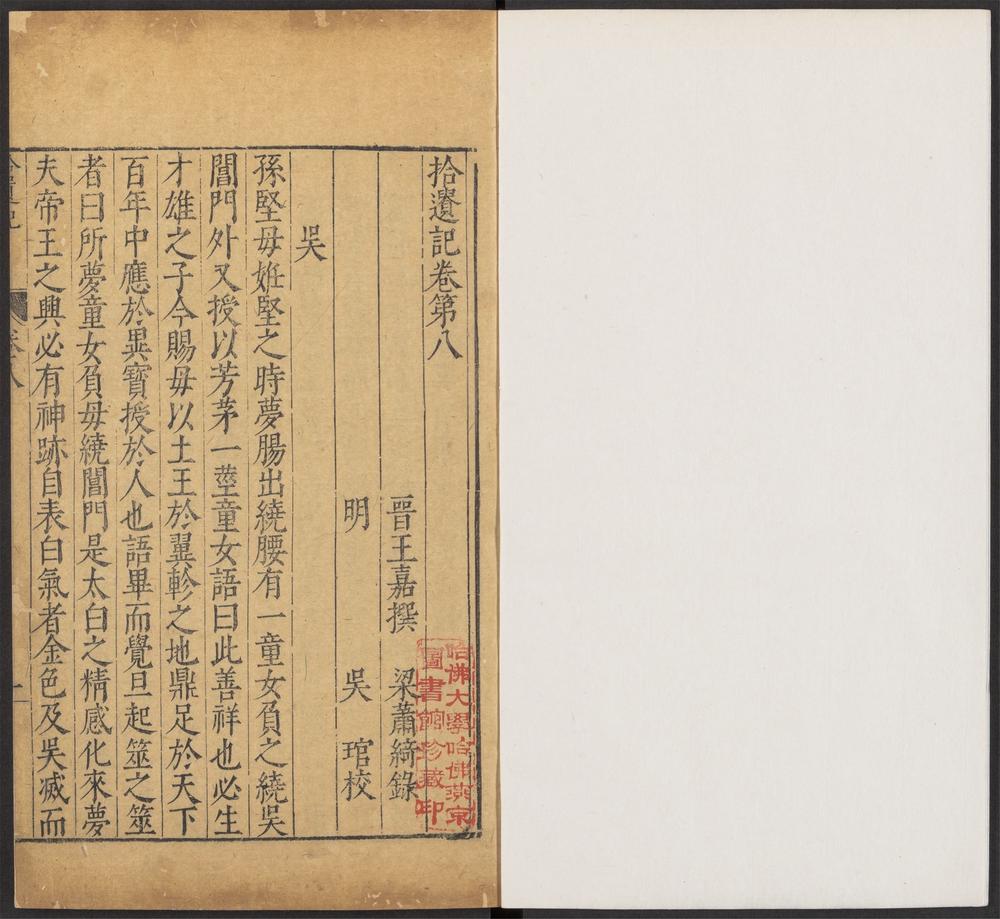 拾遺記卷第八
晉王嘉撰 梁蕭綺錄
明 吳 琯校
吳
孫堅毋妊堅之時夢腸出繞腰有一童女負之繞吳
閶門外又授以芳茅一莖童女語曰此善祥也必生
才雄之子今賜毋以土王於翼軫之地鼎足於天下
百年中應於異寶授於人也語畢而覺旦起筮之筮
者曰所夢童女負毋繞閶門是太白之精感化來夢
夫帝王之興必有神跡自表白氣者金色及吳滅而
哈佛大學哈佛燕京
圖書館珍藏印